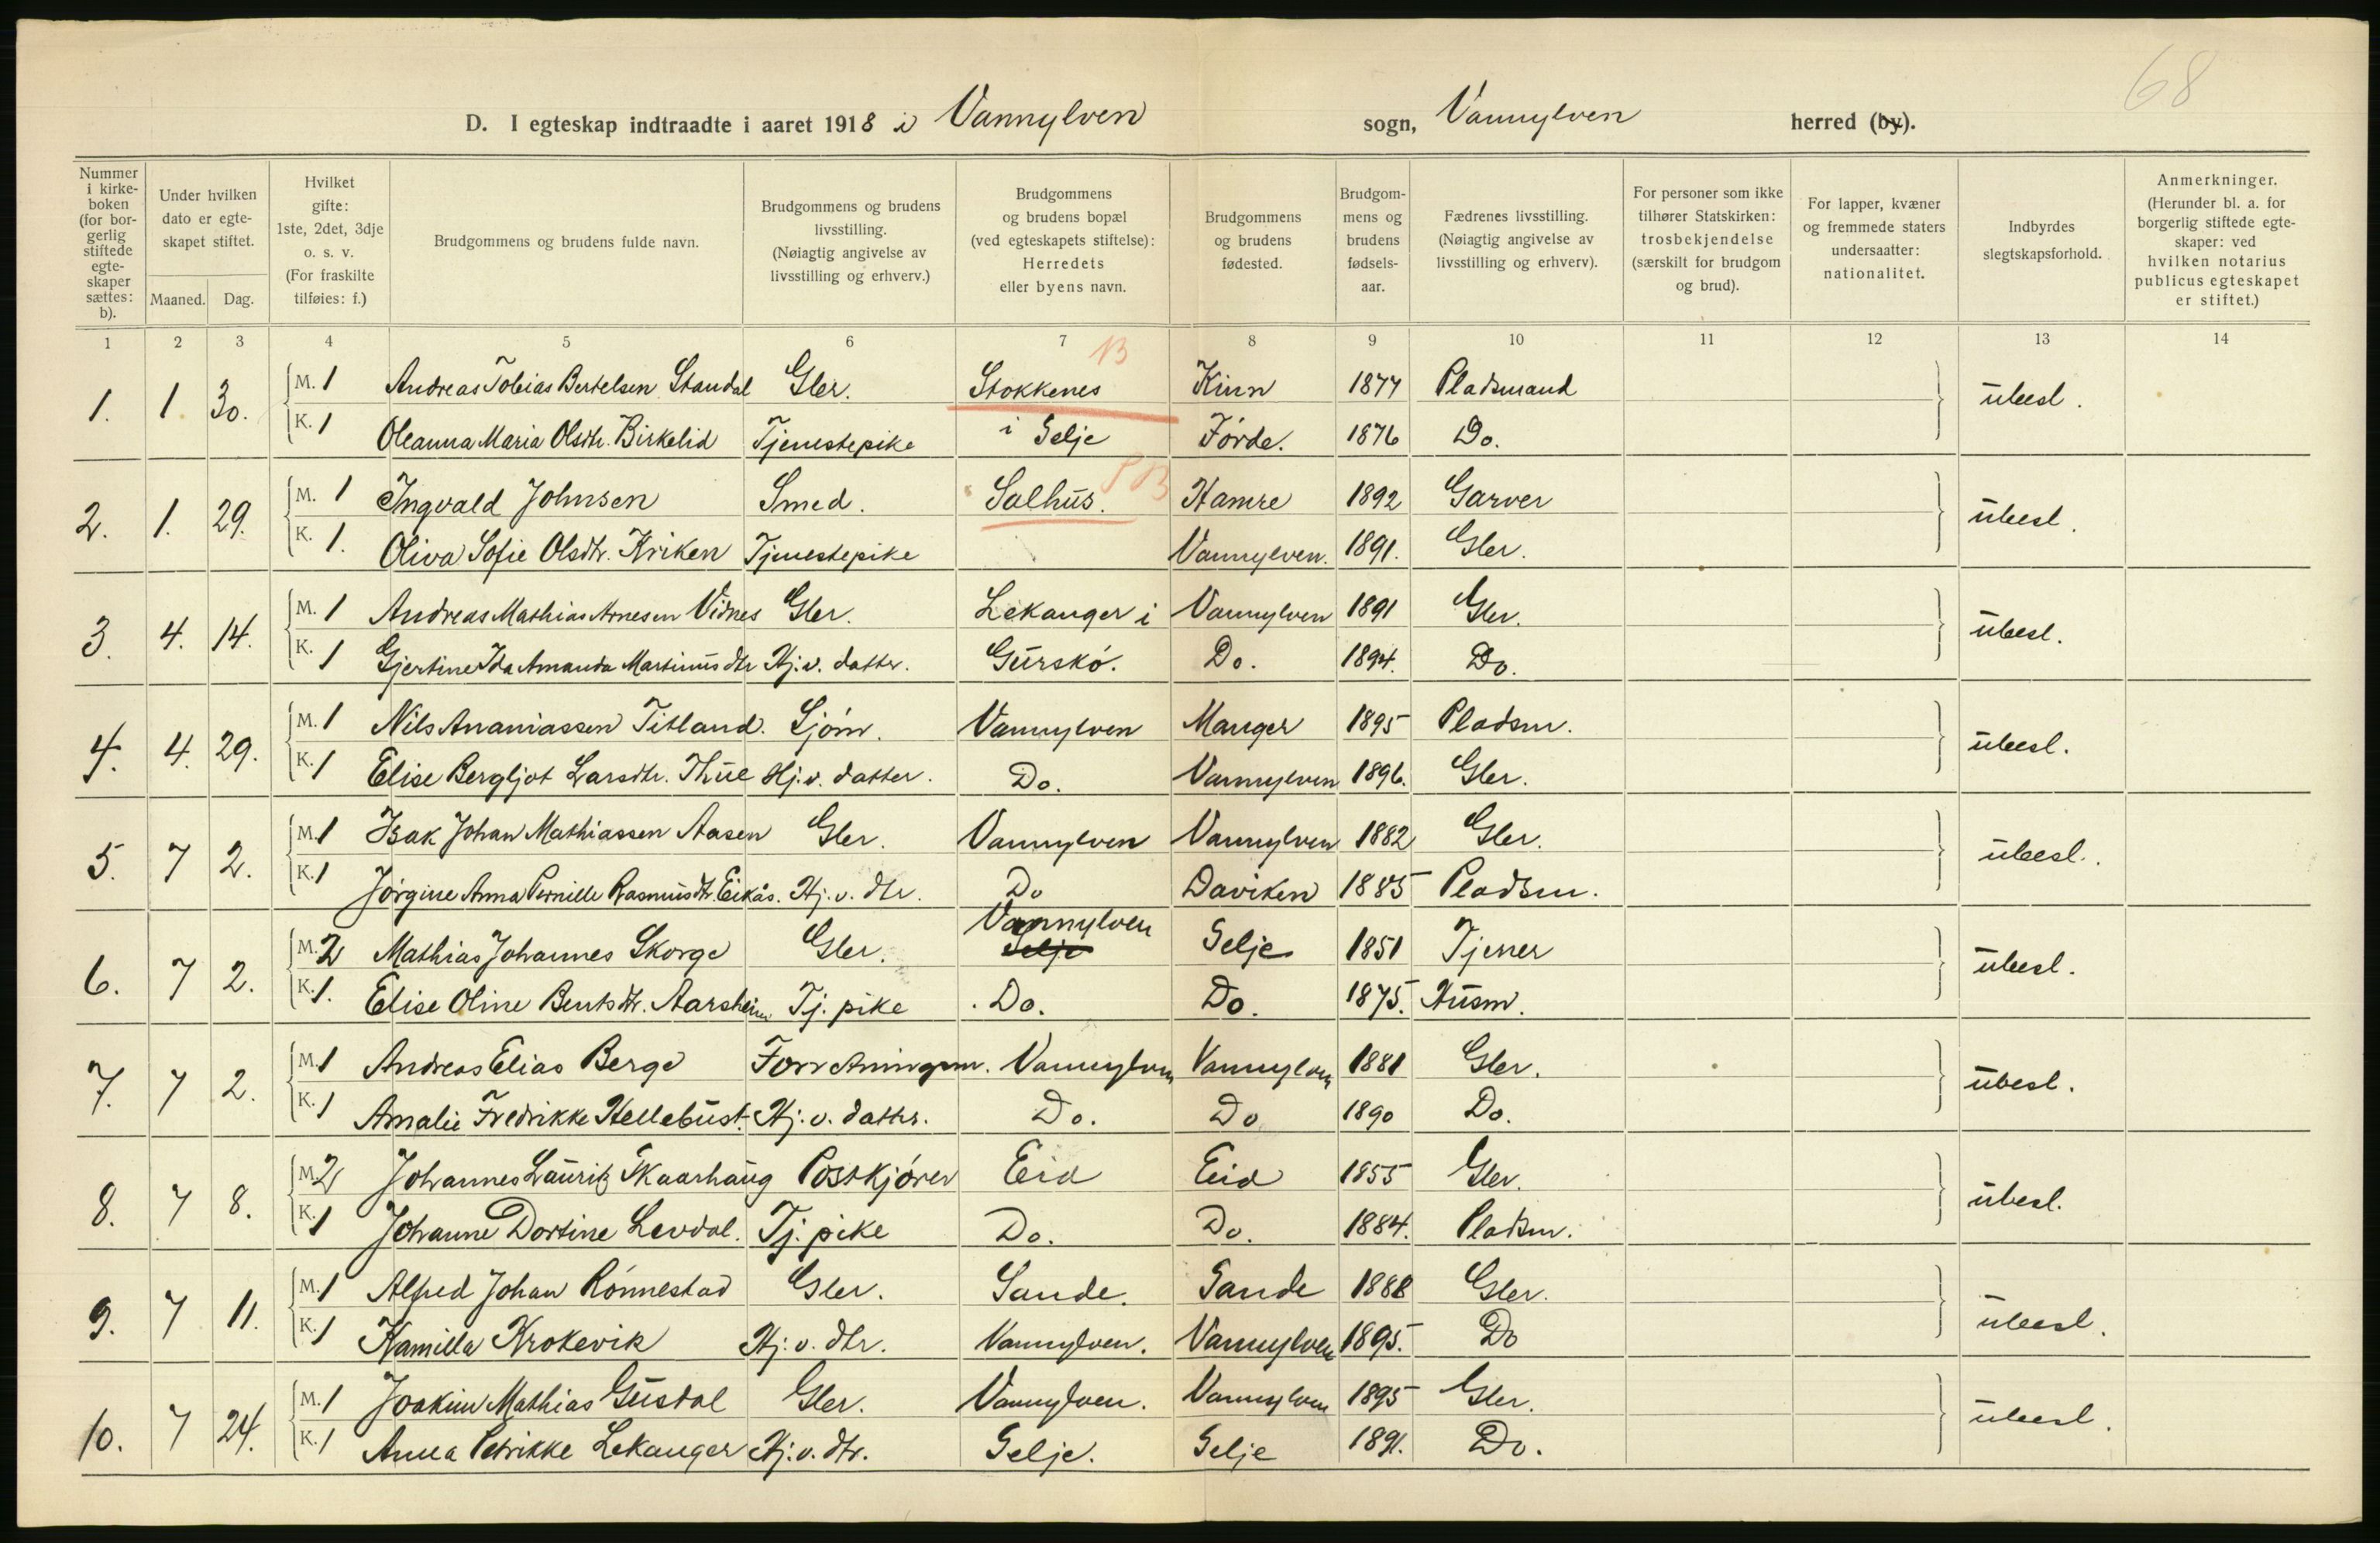 68
D. I egteskap indtraadte i aaret 1918 i Vannylven sogn, Vannylven herred (by).
Nummer i kirke-boken (for bor-gerlig stiftede egte-skaper sættes: b). Under hvilken dato er egte-skapet stiftet. Maaned. Dag. Hvilket gifte: 1ste, 2det, 3dje o. s. v. (For fraskilte tilføies: f.) Brudgommens og brudens fulde navn. Brudgommens og brudens livsstilling. (Nøiagtig angivelse av livsstilling og erhverv.) Brudgommens og brudens bopæl (ved egteskapets stiftelse): Herredets eller byens navn. Brudgommens og brudens fødested. Brudgom-mens og brudens fødsels-aar. Fædrenes livsstilling. (Nøiagtig angivelse av livsstilling og erhverv). For personer som ikke tilhører Statskirken: trosbekjendelse (særskilt for brudgom og brud). For lapper, kvæner og fremmede staters undersaatter: nationalitet. Indbyrdes slegtskapsforhold. Anmerkninger. (Herunder bl. a. for borgerlig stiftede egte-skaper: ved hvilken notarius publicus egteskapet er stiftet.)
1 2 3 4 5 6 7 8 9 10 11 12 13 14
B
1. 1 30. M. 1 Andreas Tobias Bertelsen Standal Gbr. Stokkenes Kinn 1877 Pladsmand ubesl.
K. 1 Oleanna Maria Olsdtr. Birkelid Tjenestepike i Selje Förde. 1876 Do.
SB
2. 1. 29. M. 1 Ingvald Johnsen Smed. Salhus. Hamre 1892 Garver ubesl.
K. 1. Oliva Sofie Olsdtr. Kriken Tjenestepike Vannylven. 1891. Gbr.
3. 4. 14. M. 1 Andreas Mathias Arnesen Vidnes Gbr. Lekanger i Vannylven 1891 Gbr. ubesl.
K. 1 Gjertine Ida Amanda Martinusdtr Hj. v. datter. Gurskö. Do. 1894. Do.
4. 4. 29. M. 1 Nils Ananiassen Titland. Sjöm. Vannylven Manger 1895 Pladsm. ubesl.
K. 1 Elise Bergljot Larsdtr. Thue Hj. v. datter. Do. Vannylven 1896. Gbr.
5. 7 2. M. 1 Isak Johan Mathiassen Aasen Gbr. Vannylven Vannylven 1882 Gbr. ubesl.
K. 1 Jörgine Anna Pernille Rasmusdtr. Eikås. Hj. v. dtr. Do Daviken 1885 Pladsm.
6. 7 2. M. 2 Mathias Johannes Skorge Gbr. Vannylven Selje Selje 1851 Tjener ubesl.
K. 1. Elise Oline Bentsdtr. Aarsheim Tj. pike Do. Do. 1875. Husm.
7. 7 2. M. 1 Andreas Elias Berge Forretningsm. Vannylven Vannylven 1881 Gbr. ubesl.
K. 1 Amalie Fredrikke Hellebust. Hj. v. datter. Do. Do 1890 Do.
8. 7 8. M. 2 Johannes Lauritz Skaarhaug Postkjörer Eid Eid 1855 Gbr. ubesl.
K. 1 Johanne Dortine Levdal. Tj. pike Do. Do. 1884. Pladsm.
9. 7 11. M. 1 Alfred Johan Rönnestad Gbr. Sande. Sande 1888 Gbr. ubesl.
K. 1 Kamilla Krokevik Hj. v. dtr. Vannylven. Vannylven 1895. Do
10. 7 24. M. 1 Joakim Mathias Gusdal Gbr. Vannylven. Vannylven 1895 Gbr. ubesl.
K. 1 Anna Petrikke Lekanger Hj. v. dtr. Selje. Selje 1891. Do.